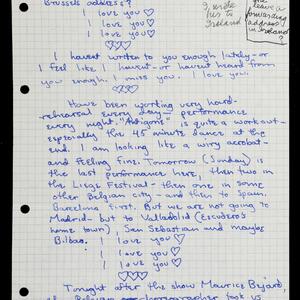 Brussels address?
I love you ♡
I love you ♡
I love you ♡
♡♡♡
I, wrote
her to
Ireland
leave a
forwarding
address
in Ireland?
I havent written to you enough lately - or
I feel like I havent - or havent heard from
you enough. I miss you. I love you.
♡♡♡
Have been working very hard -
rehearsal every day - performance
every night. "Antigone" is quite a workout -
especially the 45 minute dance at the
end. I am looking like a wiry acrobat -
and feeling fine. Tomorrow (Sunday) is
the last performance here, then two in
the Liege Festival - then one in some
other Belgian city - and then to Spain.
Barcelona first. But we are not going to
Madrid - but to Valladolid (Escubero's
home town), San Sebastian and maybe
Bilbao. I love you ♡
I love you ♡
I love you ♡
♡♡♡
Tonight after the show Maurice Bejart,
Belgian choreographer took us